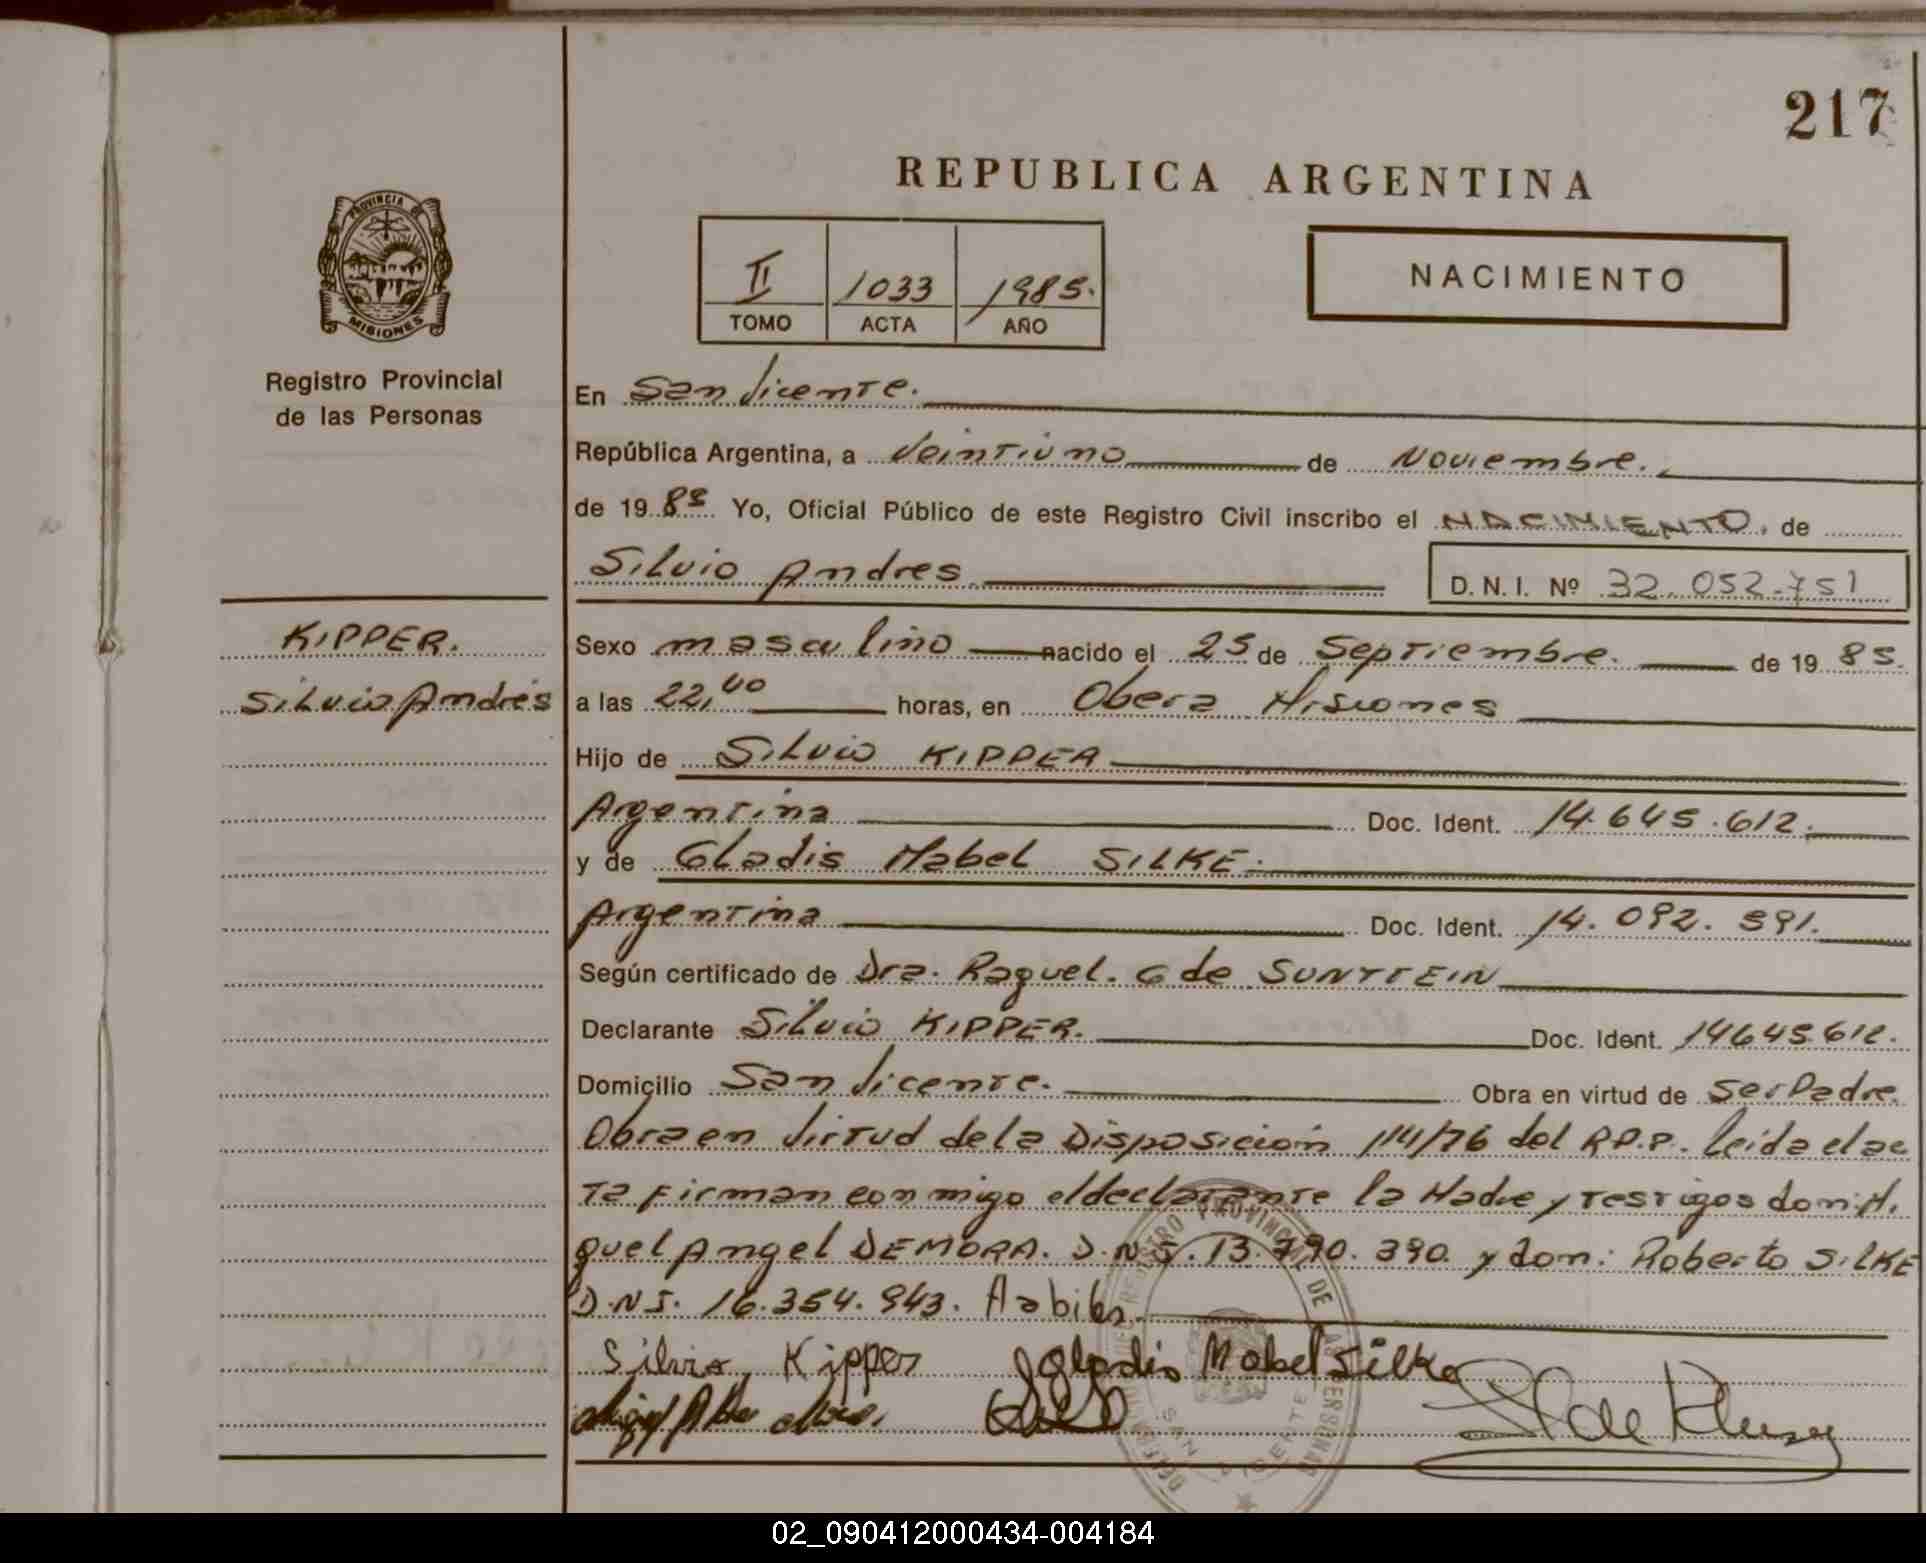 217
REPUBLICA ARGENTINA
II 1033 1985.
TOMO ACTA AÑO
NACIMIENTO
PROVINCIA DE
MISIONES
Registro Provincial
de las Personas
KIPPER.
Silvio Andrés
En San Vicente.
República Argentina, a Veintiuno de Noviembre.
de 19 85 Yo, Oficial Público de este Registro Civil inscribo el NACIMIENTO, de
Silvio Andres D. N. I. Nº 32.052.751
Sexo masculino nacido el 25 de Septiembre. de 19 85.
a las 22,00 horas, en Obera Misiones
Hijo de Silvio KIPPER
Argentina Doc. Ident. 14.645.612.
y de Gladis Mabel SILKE.
Argentina Doc. Ident. 14.092.591.
Según certificado de Dra. Raquel. G de SUNTTEIN
Declarante Silvio KIPPER. Doc. Ident. 14645.612.
Domicilio San Vicente. Obra en virtud de Ser Padre.
Obra en Virtud de la Disposición 114/76 del R.P.P. Leida el ac
ta firman conmigo el declarante la Madre y testigos don: Mi
guel Angel DEMORA. D.N.I. 13.790.390. y don: Roberto SILKE
D.N.I. 16.354.943. Habiles.
Silvio Kipper Gladis Mabel Silke
REGISTRO PROVINCIAL DE LAS PERSONAS
SAN VICENTE
02_090412000434-004184